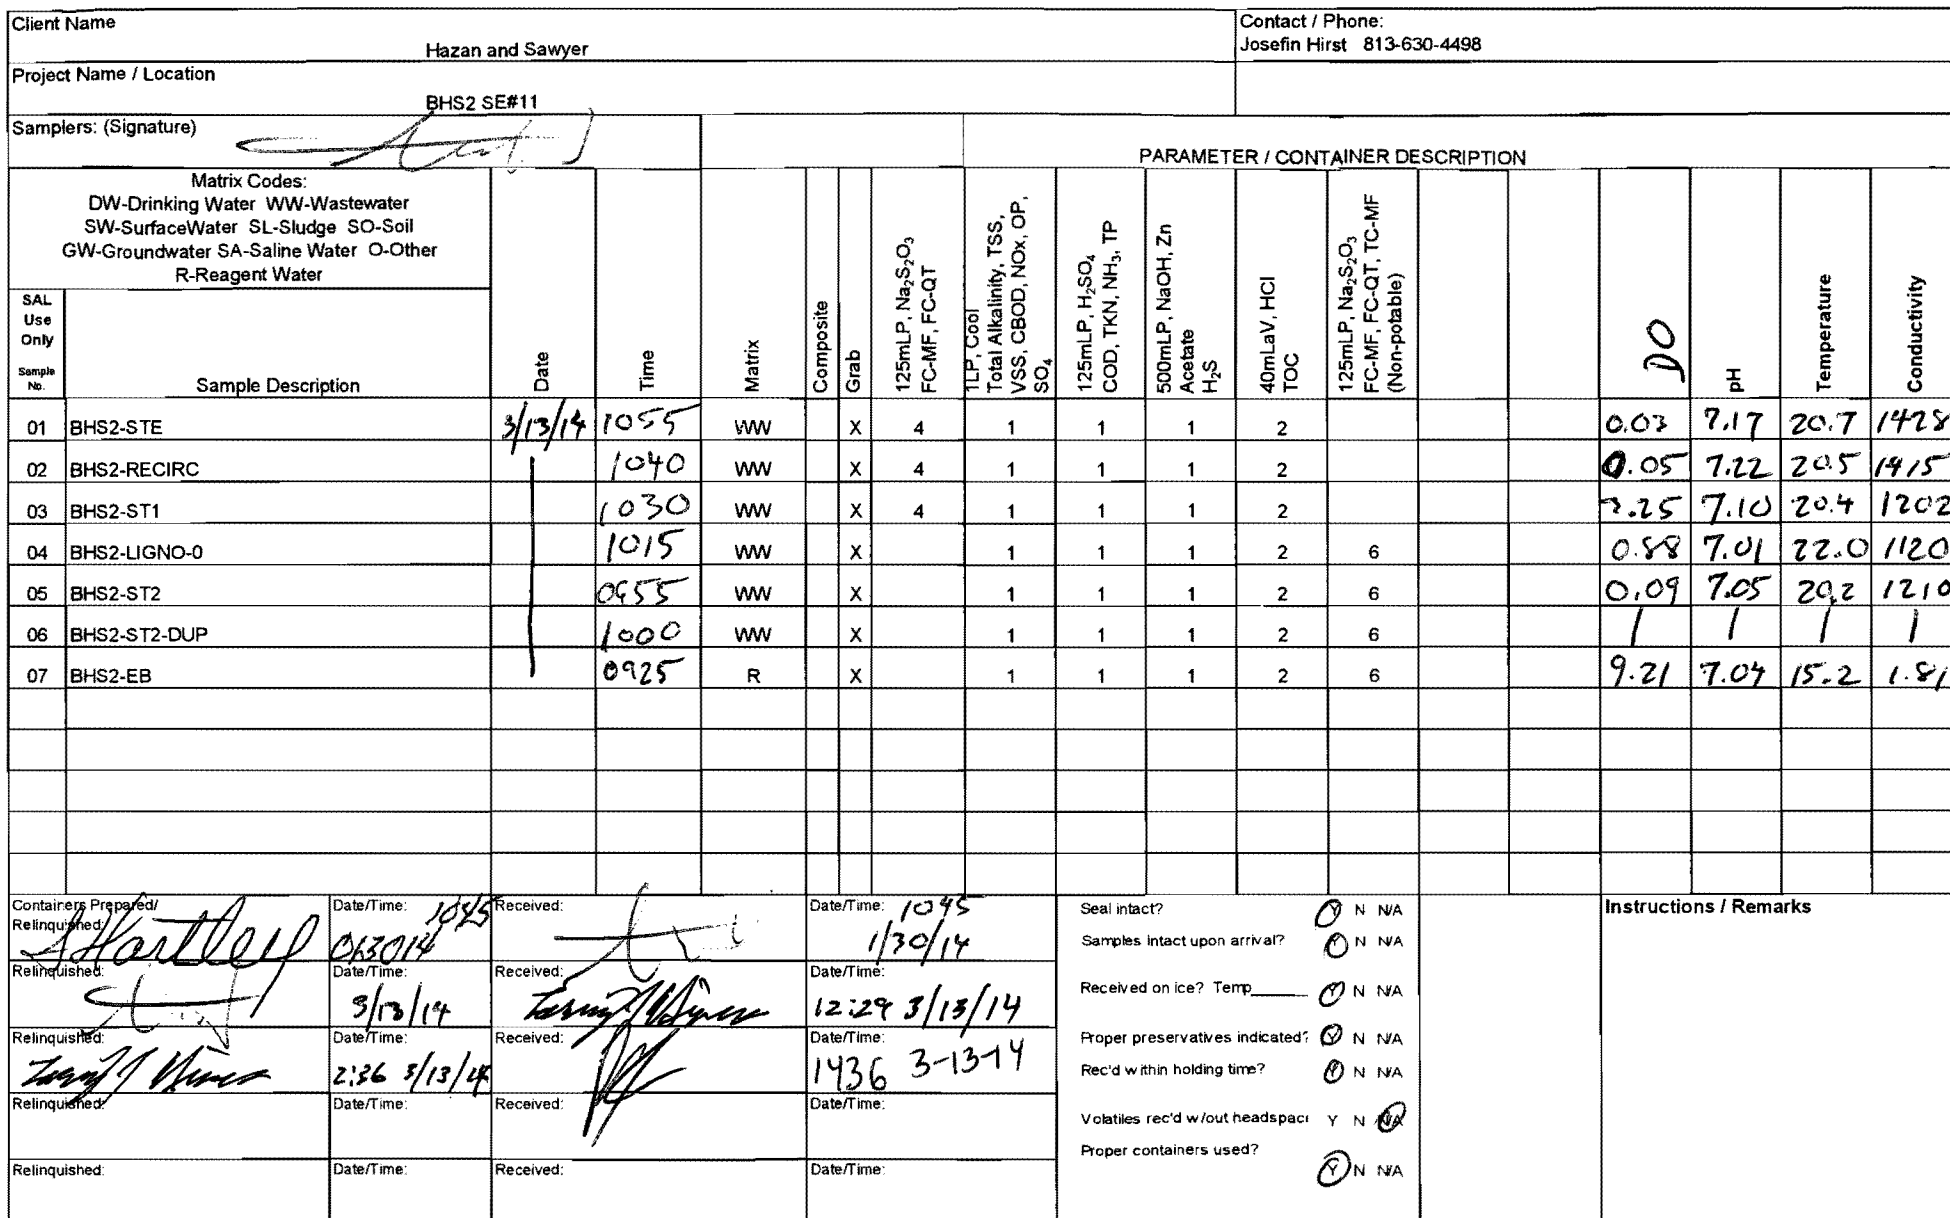 Client Name
Hazan and Sawyer
Contact / Phone:
Josefin Hirst 813-630-4498
Project Name / Location
BHS2 SE#11
Samplers: (Signature)
PARAMETER / CONTAINER DESCRIPTION
Matrix Codes:
DW-Drinking Water WW-Wastewater
SW-SurfaceWater SL-Sludge SO-Soil
GW-Groundwater SA-Saline Water O-Other
R-Reagent Water
SAL
Use
Only
Sample
No.
Sample Description
Date
Time
Matrix
Composite
Grab
125mLP, Na₂S₂O₃
FC-MF, FC-QT
1LP, Cool
Total Alkalinity, TSS,
VSS, CBOD, NOx, OP,
SO₄
125mLP, H₂SO₄
COD, TKN, NH₃, TP
500mLP, NaOH, Zn
Acetate
H₂S
40mLaV, HCl
TOC
125mLP, Na₂S₂O₃
FC-MF, FC-QT, TC-MF
(Non-potable)
DO
pH
Temperature
Conductivity
01 BHS2-STE 3/13/14 1055 WW X 4 1 1 1 2 0.03 7.17 20.7 1428
02 BHS2-RECIRC 1040 WW X 4 1 1 1 2 0.05 7.22 20.5 1415
03 BHS2-ST1 1030 WW X 4 1 1 1 2 .25 7.10 20.4 1202
04 BHS2-LIGNO-0 1015 WW X 1 1 1 2 6 0.88 7.01 22.0 1120
05 BHS2-ST2 0955 WW X 1 1 1 2 6 0.09 7.05 20.2 1210
06 BHS2-ST2-DUP 1000 WW X 1 1 1 2 6 | | | |
07 BHS2-EB 0925 R X 1 1 1 2 6 9.21 7.04 15.2 1.81
Containers Prepared/
Relinquished:
SHartley
Date/Time: 1045
013014
Received:
Date/Time: 1045
1/30/14
Relinquished:
Date/Time:
3/13/14
Received:
Date/Time:
12:29 3/13/14
Relinquished:
Date/Time:
2:36 3/13/14
Received:
Date/Time:
1436 3-13-14
Relinquished:
Date/Time:
Received:
Date/Time:
Relinquished:
Date/Time:
Received:
Date/Time:
Seal intact? Y N N/A
Samples intact upon arrival? Y N N/A
Received on ice? Temp______ Y N N/A
Proper preservatives indicated? Y N N/A
Rec'd within holding time? Y N N/A
Volatiles rec'd w/out headspac Y N N/A
Proper containers used?
Y N N/A
Instructions / Remarks